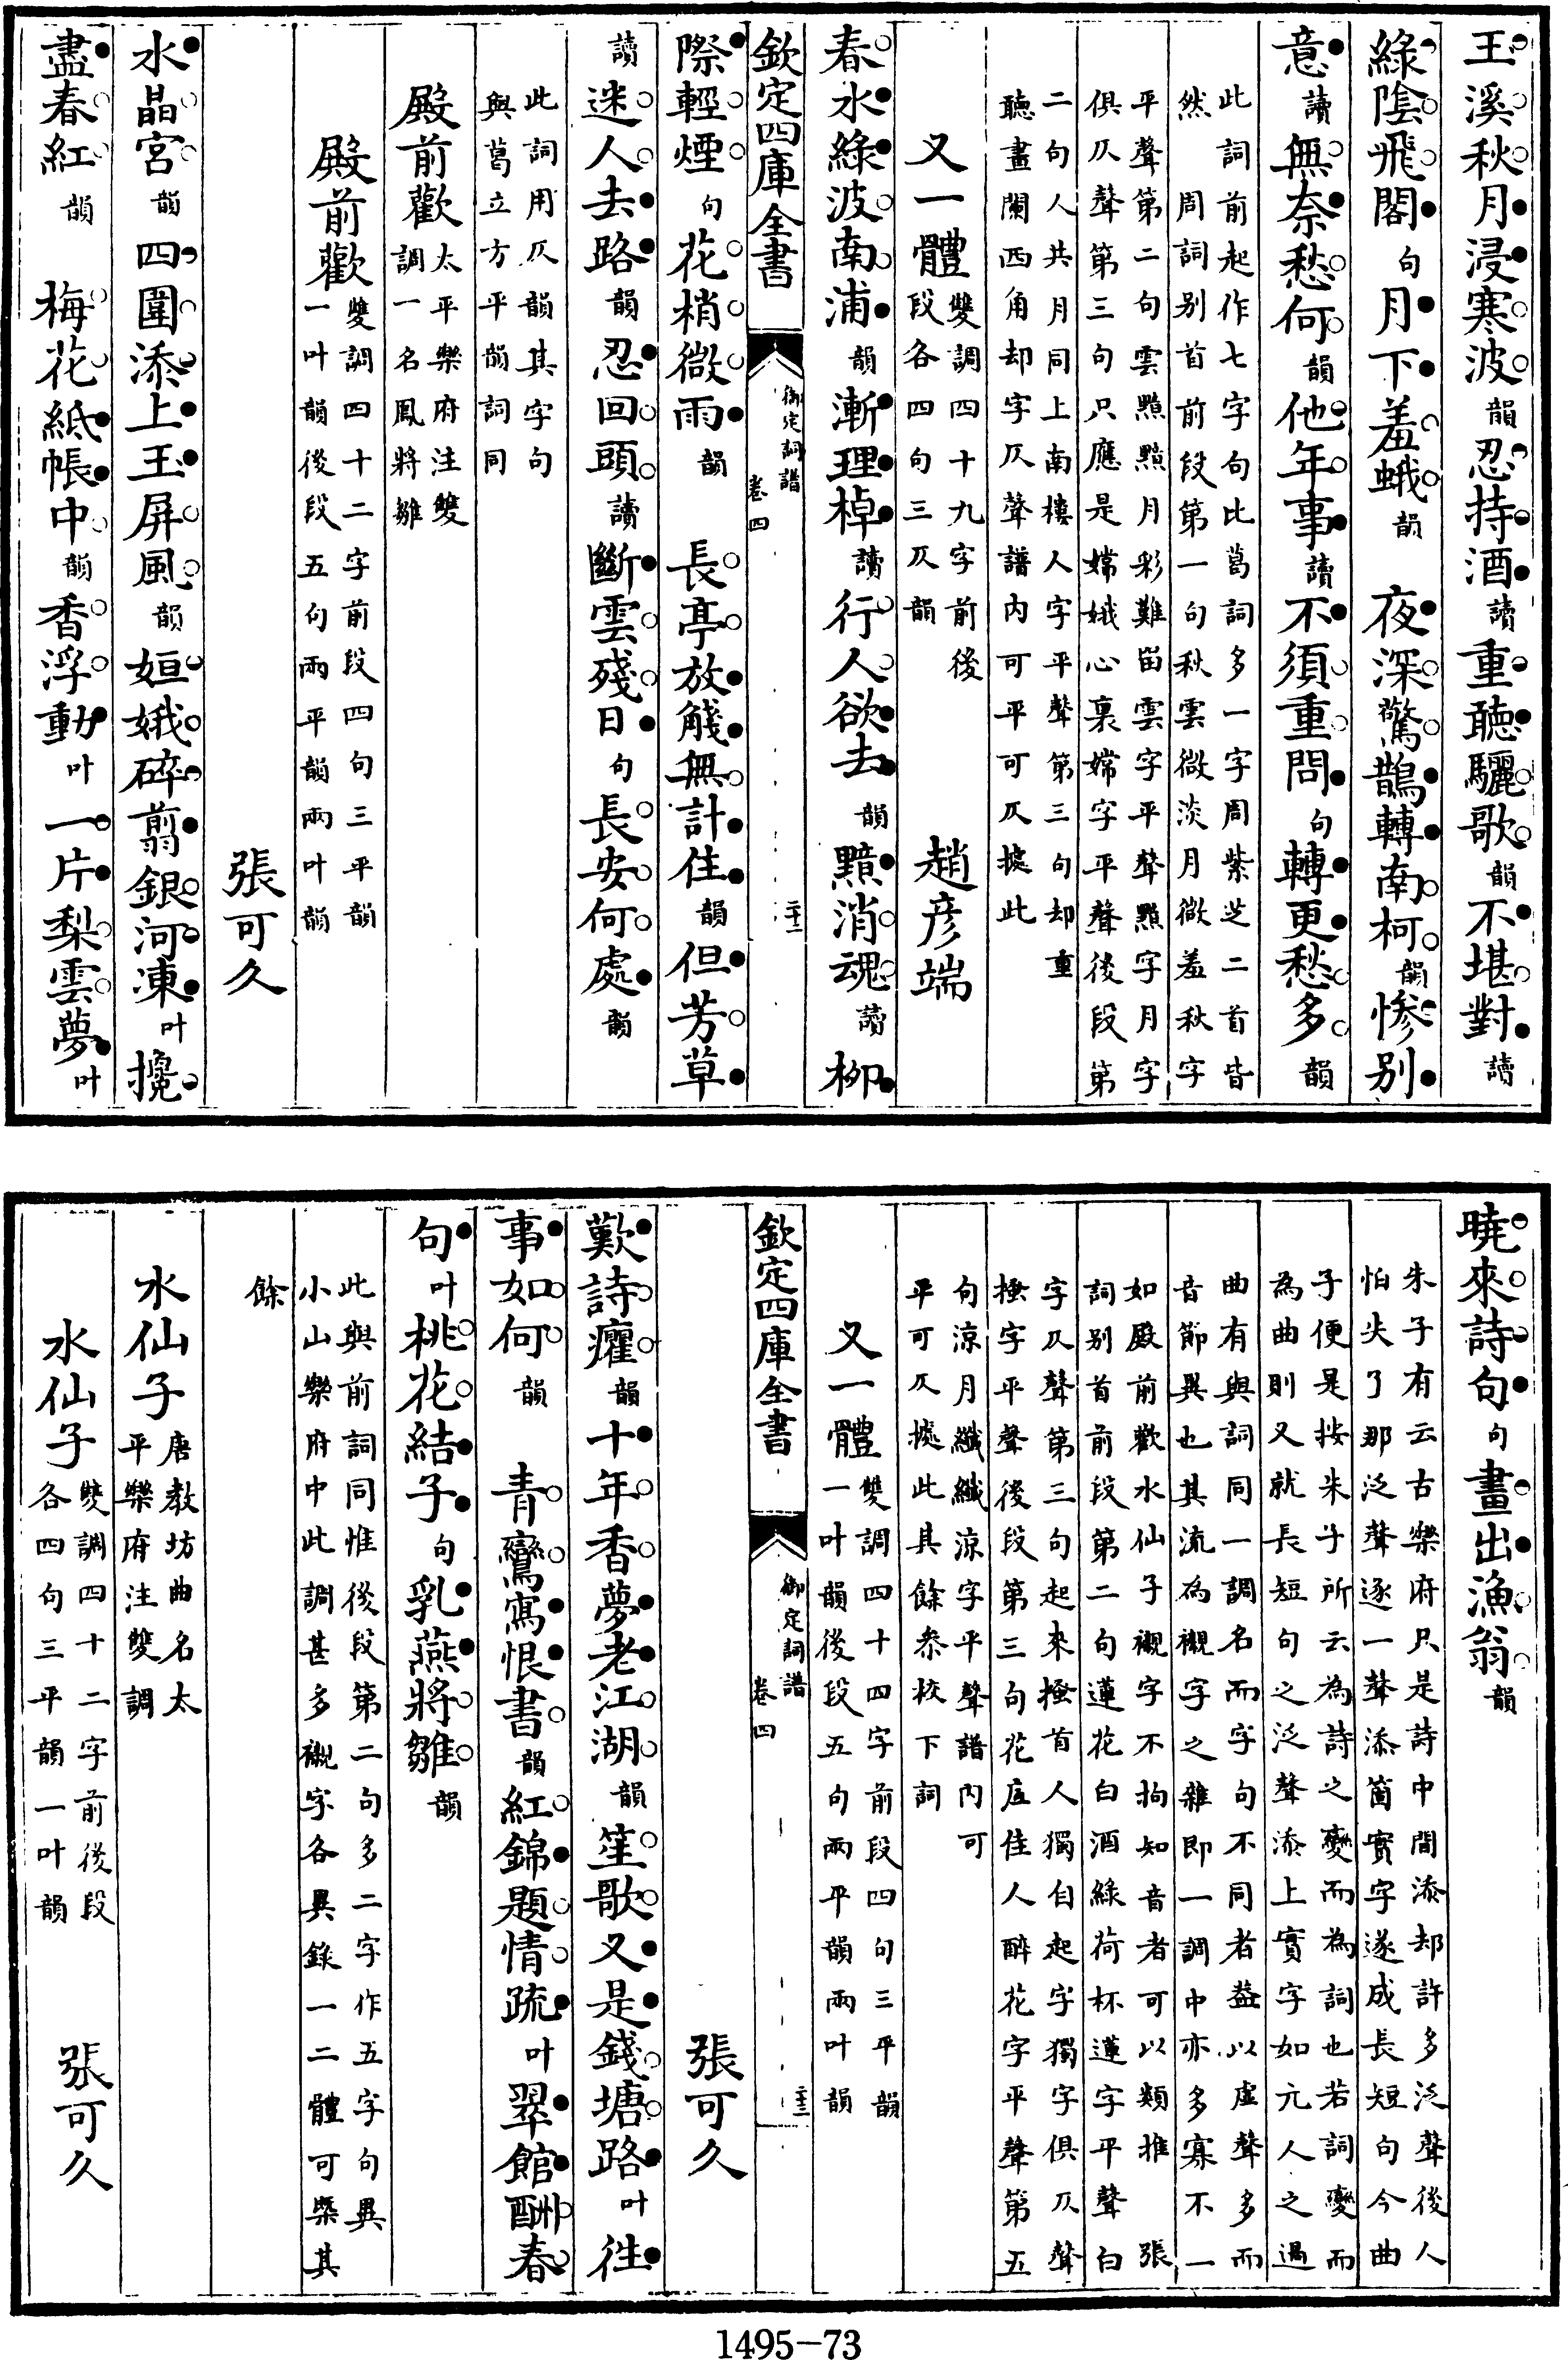 玉溪秋月浸寒波韻忍持酒讀重聽驪歌韻不堪對讀
綠陰飛閣句月下羞蛾韻　夜深驚鵲轉南柯韻慘別
意讀無奈愁何韻他年事讀不須重問句轉更愁多韻
此詞前起作七字句比葛詞多一字周紫芝二首皆
然周詞別首前段第一句秋雲微淡月微羞秋字
平聲第二句雲黯黯月彩難留雲字平聲黯字月字
俱仄聲第三句只應是嫦娥心裏嫦字平聲後段第
二句人共月同上南樓人字平聲第三句却重
聽畫闌西角却字仄聲譜內可平可仄據此
又一體雙調四十九字前後
段各四句三仄韻　趙彥端
春水綠波南浦韻漸理棹讀行人欲去韻黯消魂讀柳
欽定四庫全書　御定詞譜　卷四　二十二
際輕煙句花梢微雨韻　長亭放醆無計住韻但芳草
讀迷人去路韻忍回頭讀斷雲殘日句長安何處韻
此詞用仄韻其字句
與葛立方平韻詞同
殿前歡太平樂府注雙
調一名鳳將雛
殿前歡雙調四十二字前段四句三平韻
一叶韻後段五句兩平韻兩叶韻
張可久
水晶宮韻四圍添上玉屏風韻姮娥碎翦銀河凍叶攙
盡春紅韻　梅花紙帳中韻香浮動叶一片梨雲夢叶
曉來詩句句畫出漁翁韻
朱子有云古樂府只是詩中間添却許多泛聲後人
怕失了那泛聲逐一聲添箇實字遂成長短句今曲
子便是按朱子所云為詩之變而為詞也若詞變而
為曲則又就長短句之泛聲添上實字如元人之過
曲有與詞同一調名而字句不同者益以虛聲多而
音節異也其流為襯字之雜即一調中亦多寡不一
如殿前歡水仙子襯字不拘知音者可以類推　張
詞別首前段第二句蓮花白酒綠荷杯蓮字平聲白
字仄聲第三句起來搔首人獨自起字獨字俱仄聲
搔字平聲後段第三句花底佳人醉花字平聲第五
句涼月纖纖涼字平聲譜內可
平可仄據此其餘叅校下詞
又一體雙調四十四字前段四句三平韻
一叶韻後段五句兩平韻兩叶韻
欽定四庫全書　御定詞譜　卷四　二十三
張可久
歎詩癯韻十年香夢老江湖韻笙歌又是錢塘路叶往
事如何韻　青鸞寫恨書韻紅錦題情疏叶翠館酬春
句叶桃花結子句乳燕將雛韻
此與前詞同惟後段第二句多二字作五字句異
小山樂府中此調甚多襯字各異錄一二體可槩其
餘
水仙子唐教坊曲名太
平樂府注雙調
水仙子雙調四十二字前後段
各四句三平韻一叶韻　張可久
1495-73